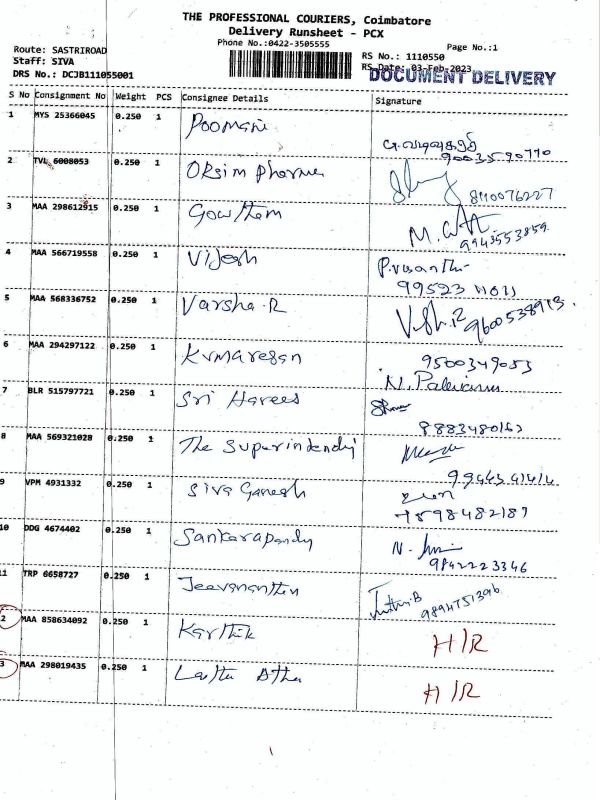 THE PROFESSIONAL COURIERS, Coimbatore
Delivery Runsheet - PCX
Phone No.:0422-3505555
Page No.:1
Route: SASTRIROAD
Staff: SIVA
DRS No.: DCJB111055001
RS No.: 1110550
RS Date: 03-Feb-2023
DOCUMENT DELIVERY
S No Consignment No Weight PCS Consignee Details Signature
1 MYS 25366045 0.250 1 Poomani
90035 90770
2 TVL 6008053 0.250 1 Orsim pharma
8110076227
3 MAA 298612915 0.250 1 Gowtham
9943553859
4 MAA 566719558 0.250 1 Vijesh P.vasanthi
99523
5 MAA 568336752 0.250 1 Varsha.R
9600538913
6 MAA 294297122 0.250 1 Kumaresan 9500349053
7 BLR 515797721 0.250 1 Sri Harees
8883480163
8 MAA 569321028 0.250 1 The Superintendy
9 VPM 4931332 0.250 1 Siva Ganesh
7598482187
10 DDG 4674402 0.250 1 Sankarapandy
9842223346
11 TRP 6658727 0.250 1 Jeevananthin
9894751396
2 MAA 858634092 0.250 1 Karthik H/R
3 MAA 298019435 0.250 1 H/R